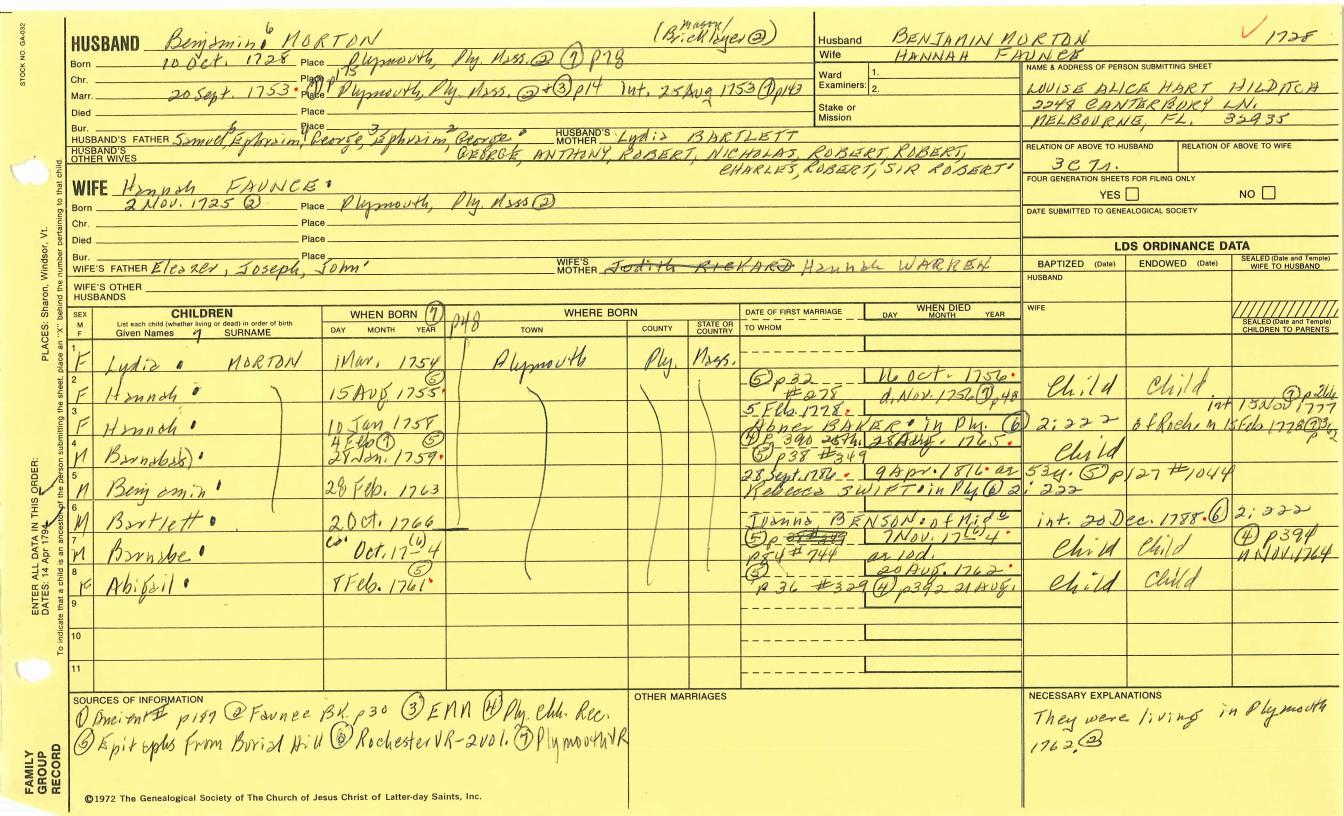 STOCK NO. GA-032
HUSBAND Benjamin 6 MORTON (Mason/ Bricklayer ②)
Born 10 Oct. 1728 Place Plymouth, Ply. Mass. ② ⑦ p78
Chr. Place p175
Marr. 20 Sept. 1753. Place Plymouth, Ply. Mass. ② + ③ p14 Int. 25 Aug 1753 ⑦ p143
Died Place
Bur. Place
HUSBAND'S FATHER Samuel 5, Ephraim 4, George 3, Ephraim 2, George 1 HUSBAND'S MOTHER Lydia BARTLETT
HUSBAND'S OTHER WIVES GEORGE, ANTHONY, ROBERT, NICHOLAS, ROBERT, ROBERT,
CHARLES, ROBERT, SIR ROBERT
WIFE Hannah FAUNCE
Born 2 Nov. 1725 ② Place Plymouth, Ply. Mass ②
Chr. Place
Died Place
Bur. Place
WIFE'S FATHER Eleazer, Joseph, John WIFE'S MOTHER Judith RICKARD Hannah WARREN
WIFE'S OTHER HUSBANDS
Husband BENJAMIN MORTON 1728
Wife HANNAH FAUNCE
Ward Examiners: 1.
2.
Stake or Mission
NAME & ADDRESS OF PERSON SUBMITTING SHEET
LOUISE ALICE HART HILDITCH
2248 CANTERBURY LN.
MELBOURNE, FL. 32935
RELATION OF ABOVE TO HUSBAND RELATION OF ABOVE TO WIFE
3C7r.
FOUR GENERATION SHEETS FOR FILING ONLY
YES NO
DATE SUBMITTED TO GENEALOGICAL SOCIETY
LDS ORDINANCE DATA
BAPTIZED (Date) ENDOWED (Date) SEALED (Date and Temple) WIFE TO HUSBAND
HUSBAND
WIFE
SEALED (Date and Temple) CHILDREN TO PARENTS
SEX M F CHILDREN List each child (whether living or dead) in order of birth Given Names 7 SURNAME WHEN BORN ⑦ p48 DAY MONTH YEAR WHERE BORN TOWN COUNTY STATE OR COUNTRY DATE OF FIRST MARRIAGE TO WHOM WHEN DIED DAY MONTH YEAR
1 F Lydia MORTON 1 Mar. 1754 Plymouth Ply. Mass.
2 F Hannah 15 Aug 1755 ⑤ ⑤ p32 #278 16 Oct. 1756 d. Nov. 1756 ⑦ p48 Child Child
3 F Hannah 10 Jan 1758 5 Feb. 1778. Abner BAKER in Ply. ⑥ 2:222 int 15 Nov 1777 ⑦ p266 of Roche m 15 Feb 1778
4 M Barnaba(s) 4 Feb ⑦ 28 Jan. 1759 ⑤ ④ p 390 28 Aug. 1765 ⑤ p38 #349 Child
5 M Benjamin 28 Feb. 1763 28 Sept. 1786. 9 Apr. 1816 ae 53y. ⑤ p127 #1044 Rebecca SWIFT in Ply. ⑥ 2:222
6 M Bartlett 2 Oct. 1766 Joanna BENSON of Mid. int. 20 Dec. 1788. ⑥ 2:222
7 M Barnabe Oct. 17(6)4 ⑤ p54 #744 7 Nov. 17(6)4 ae 10d. Child Child ④ p394 n Nov. 1764
8 F Abigail 8 Feb. 1761 ⑤ ⑤ p 36 #329 20 Aug. 1762 ④ p392 21 Aug. Child Child
9
10
11
SOURCES OF INFORMATION
① Ancient II p187 ② Faunce BK p30 ③ EMM ④ Ply. Chh. Rec.
⑤ Epitaphs From Burial Hill ⑥ Rochester VR-2 vol. ⑦ Plymouth VR
OTHER MARRIAGES
NECESSARY EXPLANATIONS
They were living in Plymouth
1762. ②
©1972 The Genealogical Society of The Church of Jesus Christ of Latter-day Saints, Inc.
FAMILY GROUP RECORD
ENTER ALL DATA IN THIS ORDER:
DATES: 14 Apr 1794 PLACES: Sharon, Windsor, Vt.
To indicate that a child is an ancestor of the person submitting the sheet, place an "X" behind the number pertaining to that child.